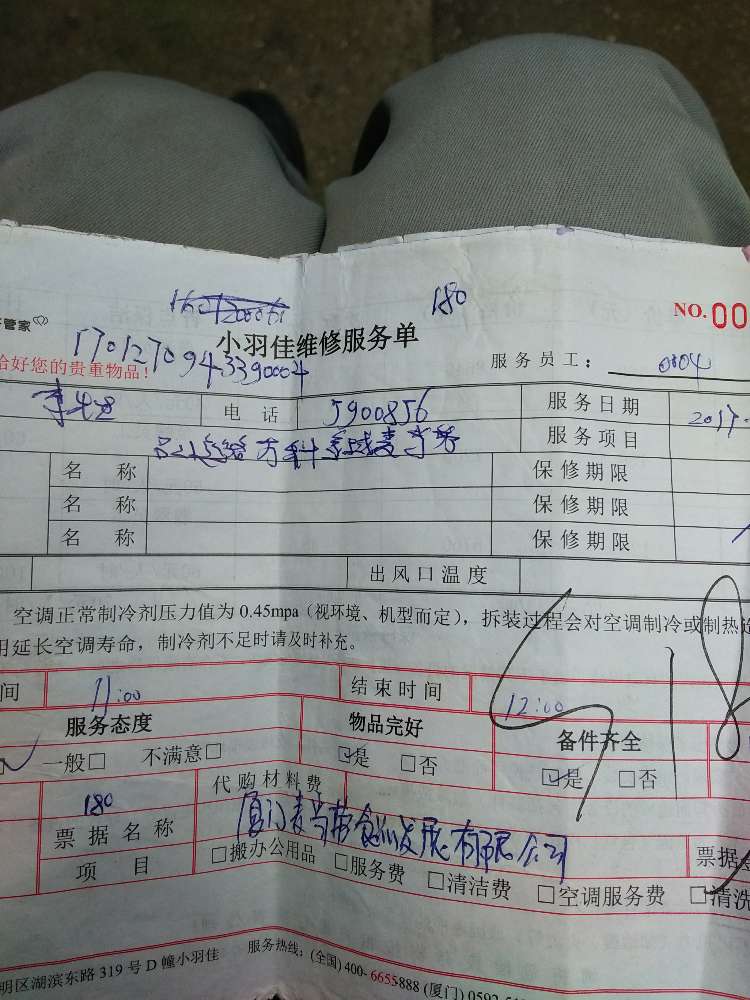 180
NO.00
管家
小羽佳维修服务单
1701270943390004
恰好您的贵重物品!
服务员工: 0104
电话 5900856 服务日期 2017
服务项目
名称 保修期限
名称 保修期限
名称 保修期限
出风口温度
空调正常制冷剂压力值为 0.45mpa（视环境、机型而定），拆装过程会对空调制冷或制热造
用延长空调寿命，制冷剂不足时请及时补充。
间 11:00 结束时间 12:00
518
服务态度 物品完好 备件齐全
一般□ 不满意□ ☑是 □否 ☑是 □否
180 代购材料费
票据名称 厦门麦当劳食品发展有限公司 票据
项目 □搬办公用品 □服务费 □清洁费 □空调服务费 □清洗
明区湖滨东路 319 号 D 幢小羽佳 服务热线: (全国) 400-6655888 (厦门) 0592-